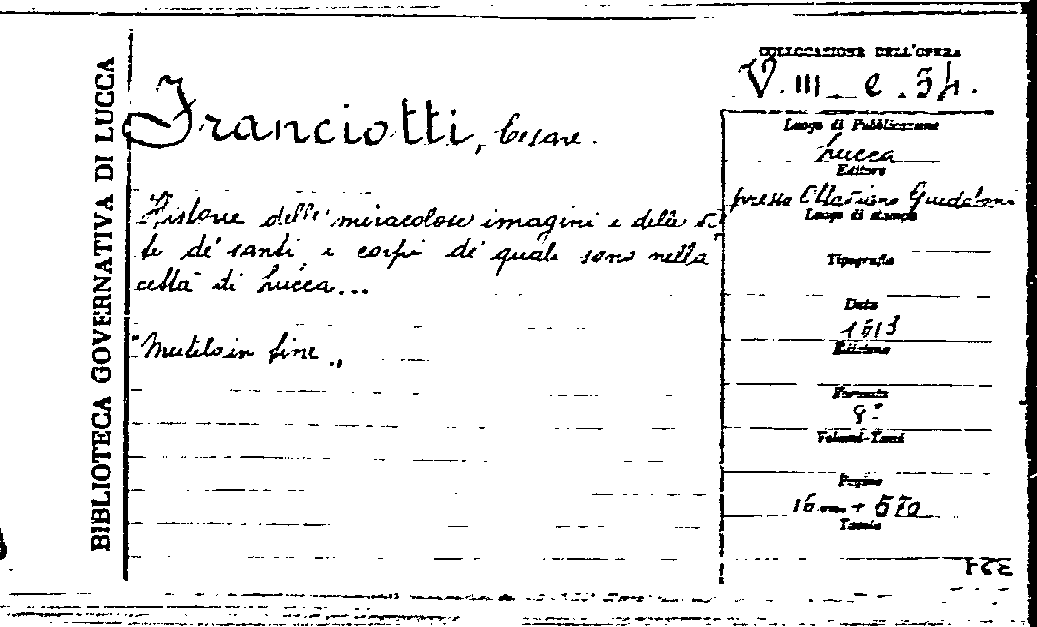 BIBLIOTECA GOVERNATIVA DI LUCCA
Franciotti, Cesare.
Historie delle miracolose imagini e delle vi
te de' santi, e corpi de' quali sono nella
città di Lucca...
"Mutilo in fine„
COLLOCAZIONE DELL'OPERA
V. III. e. 34.
Luogo di Pubblicazione
Lucca
Editore
presso Ottaviano Guidoboni
Luogo di stampa
Tipografia
Data
1613
Edizione
Formato
8°
Volumi-Tomi
Pagine
16 + 570
Tavole